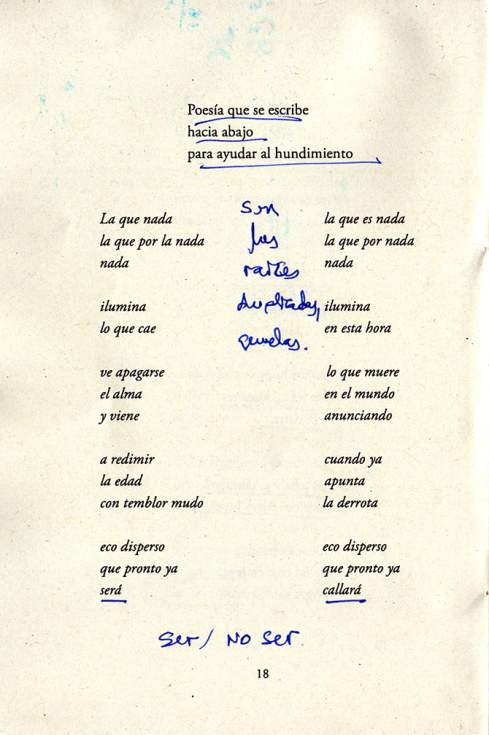 Poesía que se escribe
hacia abajo
para ayudar al hundimiento
La que nada
la que por la nada
nada
ilumina
lo que cae
ve apagarse
el alma
y viene
a redimir
la edad
con temblor mudo
eco disperso
que pronto ya
será
Son
las
raíces
duplicadas,
gemelas.
la que es nada
la que por nada
nada
ilumina
en esta hora
lo que muere
en el mundo
anunciando
cuando ya
apunta
la derrota
eco disperso
que pronto ya
callará
Ser / NO Ser.
18